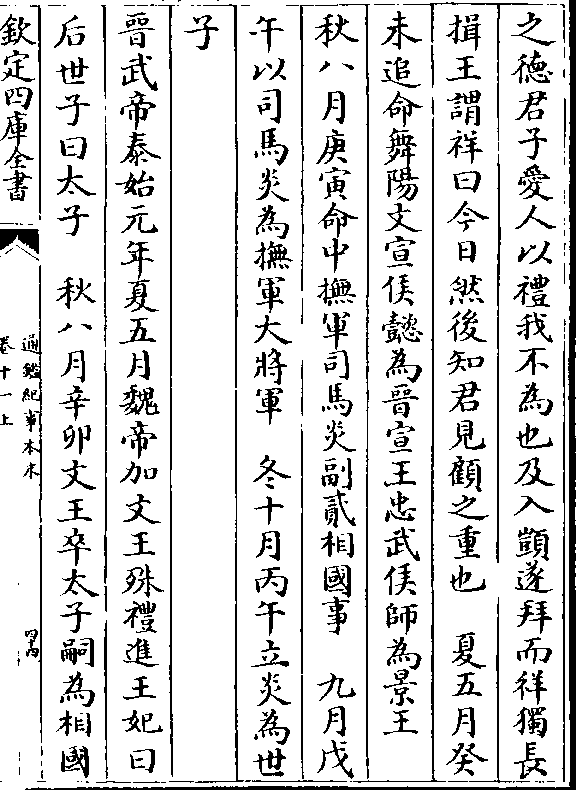 之德君子愛人以禮我不為也及入顗遂拜而祥獨長
揖王謂祥曰今日然後知君見顧之重也　夏五月癸
未追命舞陽文宣侯懿為晉宣王忠武侯師為景王
秋八月庚寅命中撫軍司馬炎副貳相國事　九月戊
午以司馬炎為撫軍大將軍　冬十月丙午立炎為世
子
晉武帝泰始元年夏五月魏帝加文王殊禮進王妃曰
后世子曰太子　秋八月辛卯文王卒太子嗣為相國
欽定四庫全書
通鑑紀事本末
卷十一上
四十四